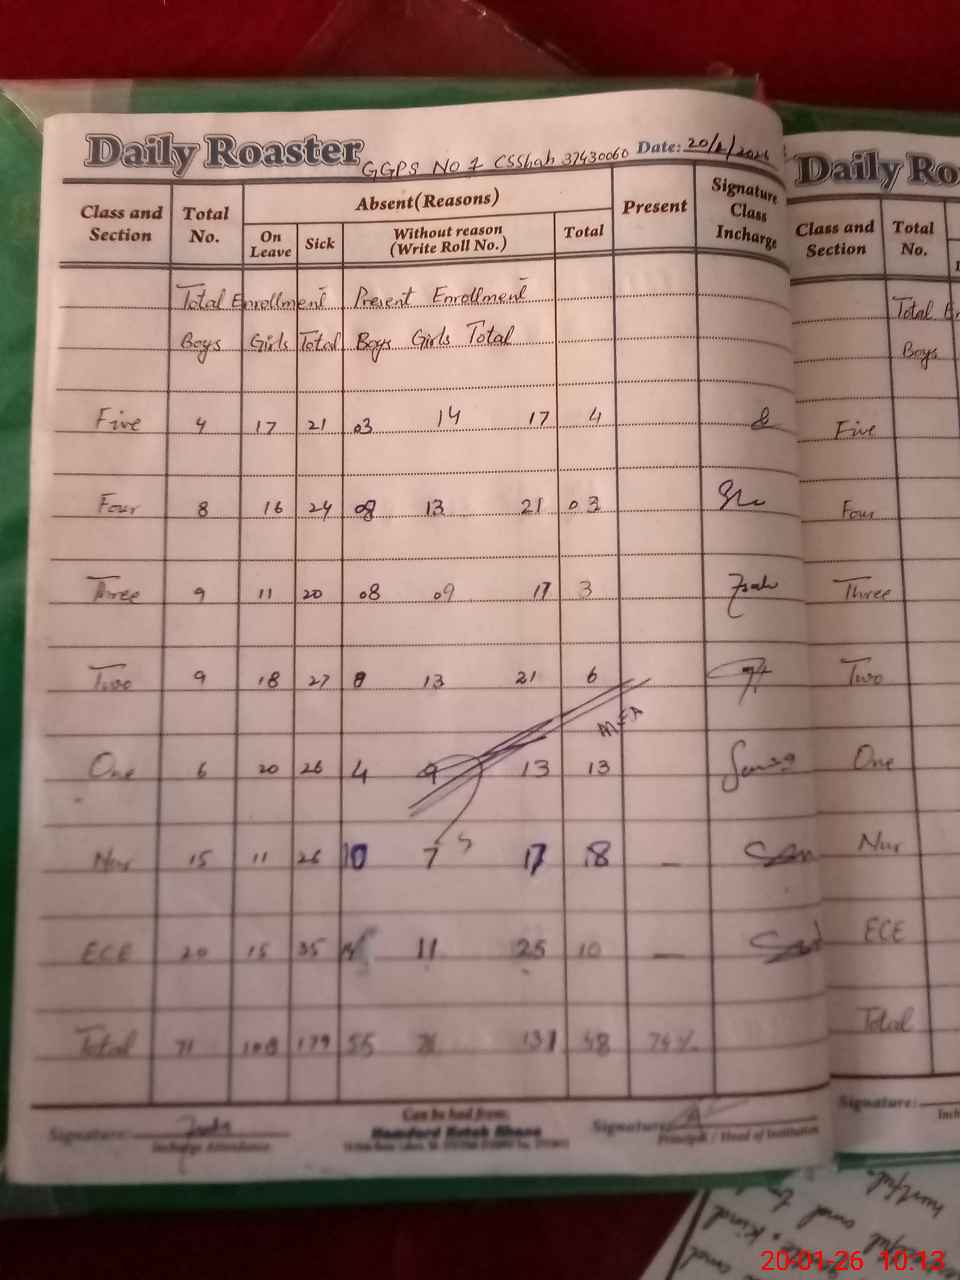 Daily Roaster
GGPS No 1 CSShah 37430060 Date: 20/1/2026
Class and Section Total No. Absent(Reasons) Present Signature Class Incharge
On Leave Sick Without reason (Write Roll No.) Total
Total Enrollment Present Enrollment
Boys Girls Total Boys Girls Total
Five 4 17 21 03 14 17 4
Four 8 16 24 08 13 21 03
Three 9 11 20 08 09 17 3
Two 9 18 27 8 13 21 6
MEA
One 6 20 26 4 9 13 13
Nur 15 11 26 10 7 17 8 –
ECE 20 15 35 11 25 10 –
Total 71 108 179 55 131 48
Signature: Incharge Attendance
Can be had from:
Signature: Principal / Head of Institution
Daily Ro
Class and Section Total No.
Total En
Boys
Five
Four
Three
Two
One
Nur
ECE
Total
Signature:
20-01-26 10:13